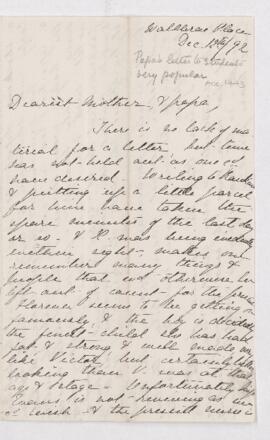 Wallbrae Place
Dec. 12th/92
Papa's letter to students
very popular
Dearest Mother & papa,
There is no lack of ma
terial for a letter, but time
has not held out as one could
have desired. Writing to
& putting up a little parcel
for him have taken the
spare minutes of the last day
or so. & X. mas being
within sight makes one
remember many things &
people that might otherwise be
left out of count for the present
Florence seems to be getting on
famously & the boy is decidedly
the finest child she has had
fat & strong & well made
like Victor, but certainly better
looking than V. was at that
age & stage. Unfortunately
is not renewing as
& the present nurse is